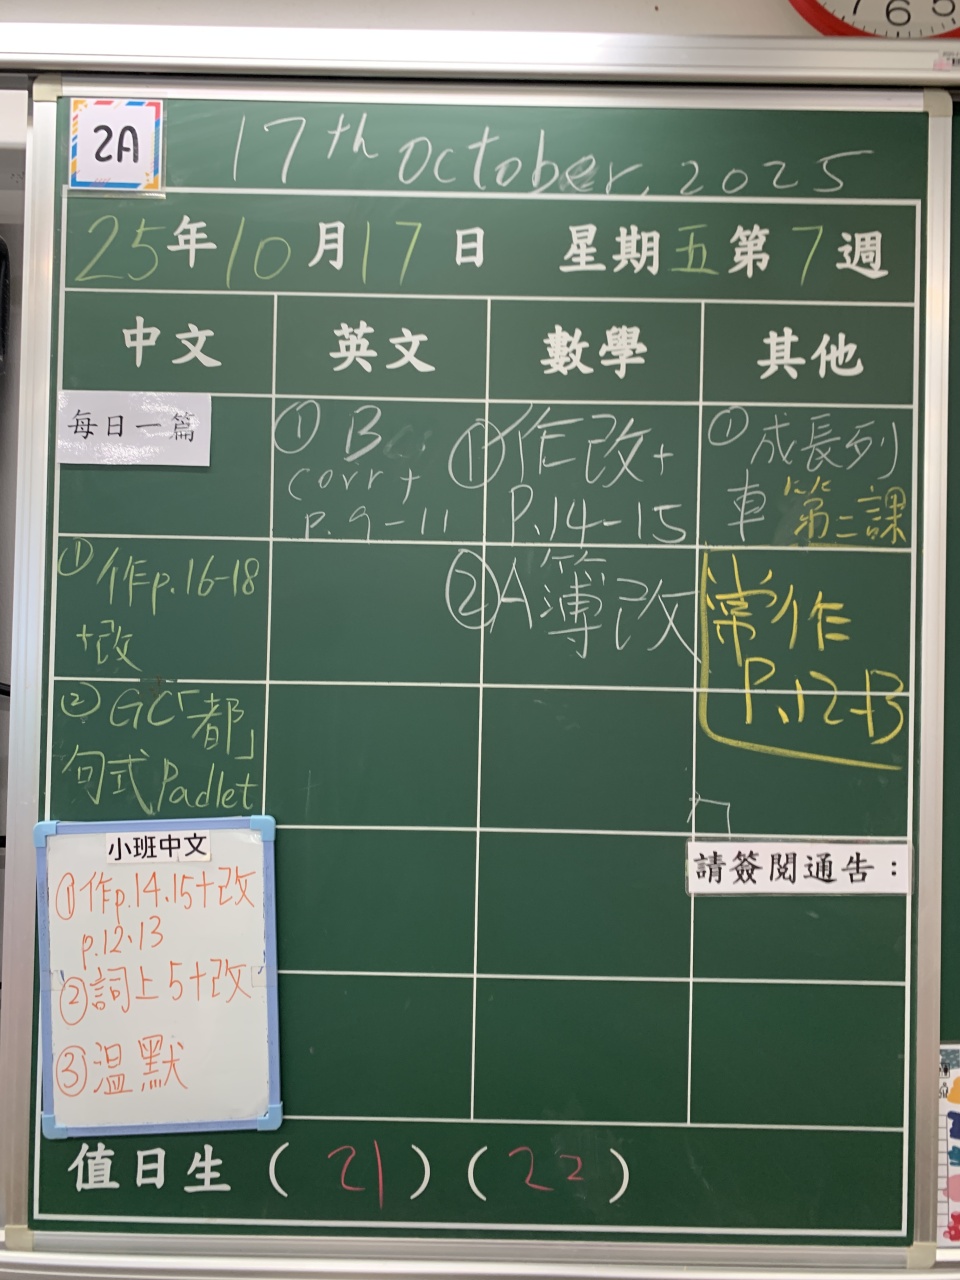 2A
17th October, 2025
25年10月17日 星期五第7週
中文
英文
數學
其他
每日一篇
①作p.16-18
+改
②GC「都」
句式Padlet
①B
corr+
p.9-11
①作改+
P.14-15
②A簿改
①成長列
車 第二課
常作
P.12-13
請簽閱通告：
小班中文
①作p.14.15+改
p.12、13
②詞上5+改
③溫默
值日生(21)(22)
7 6 5